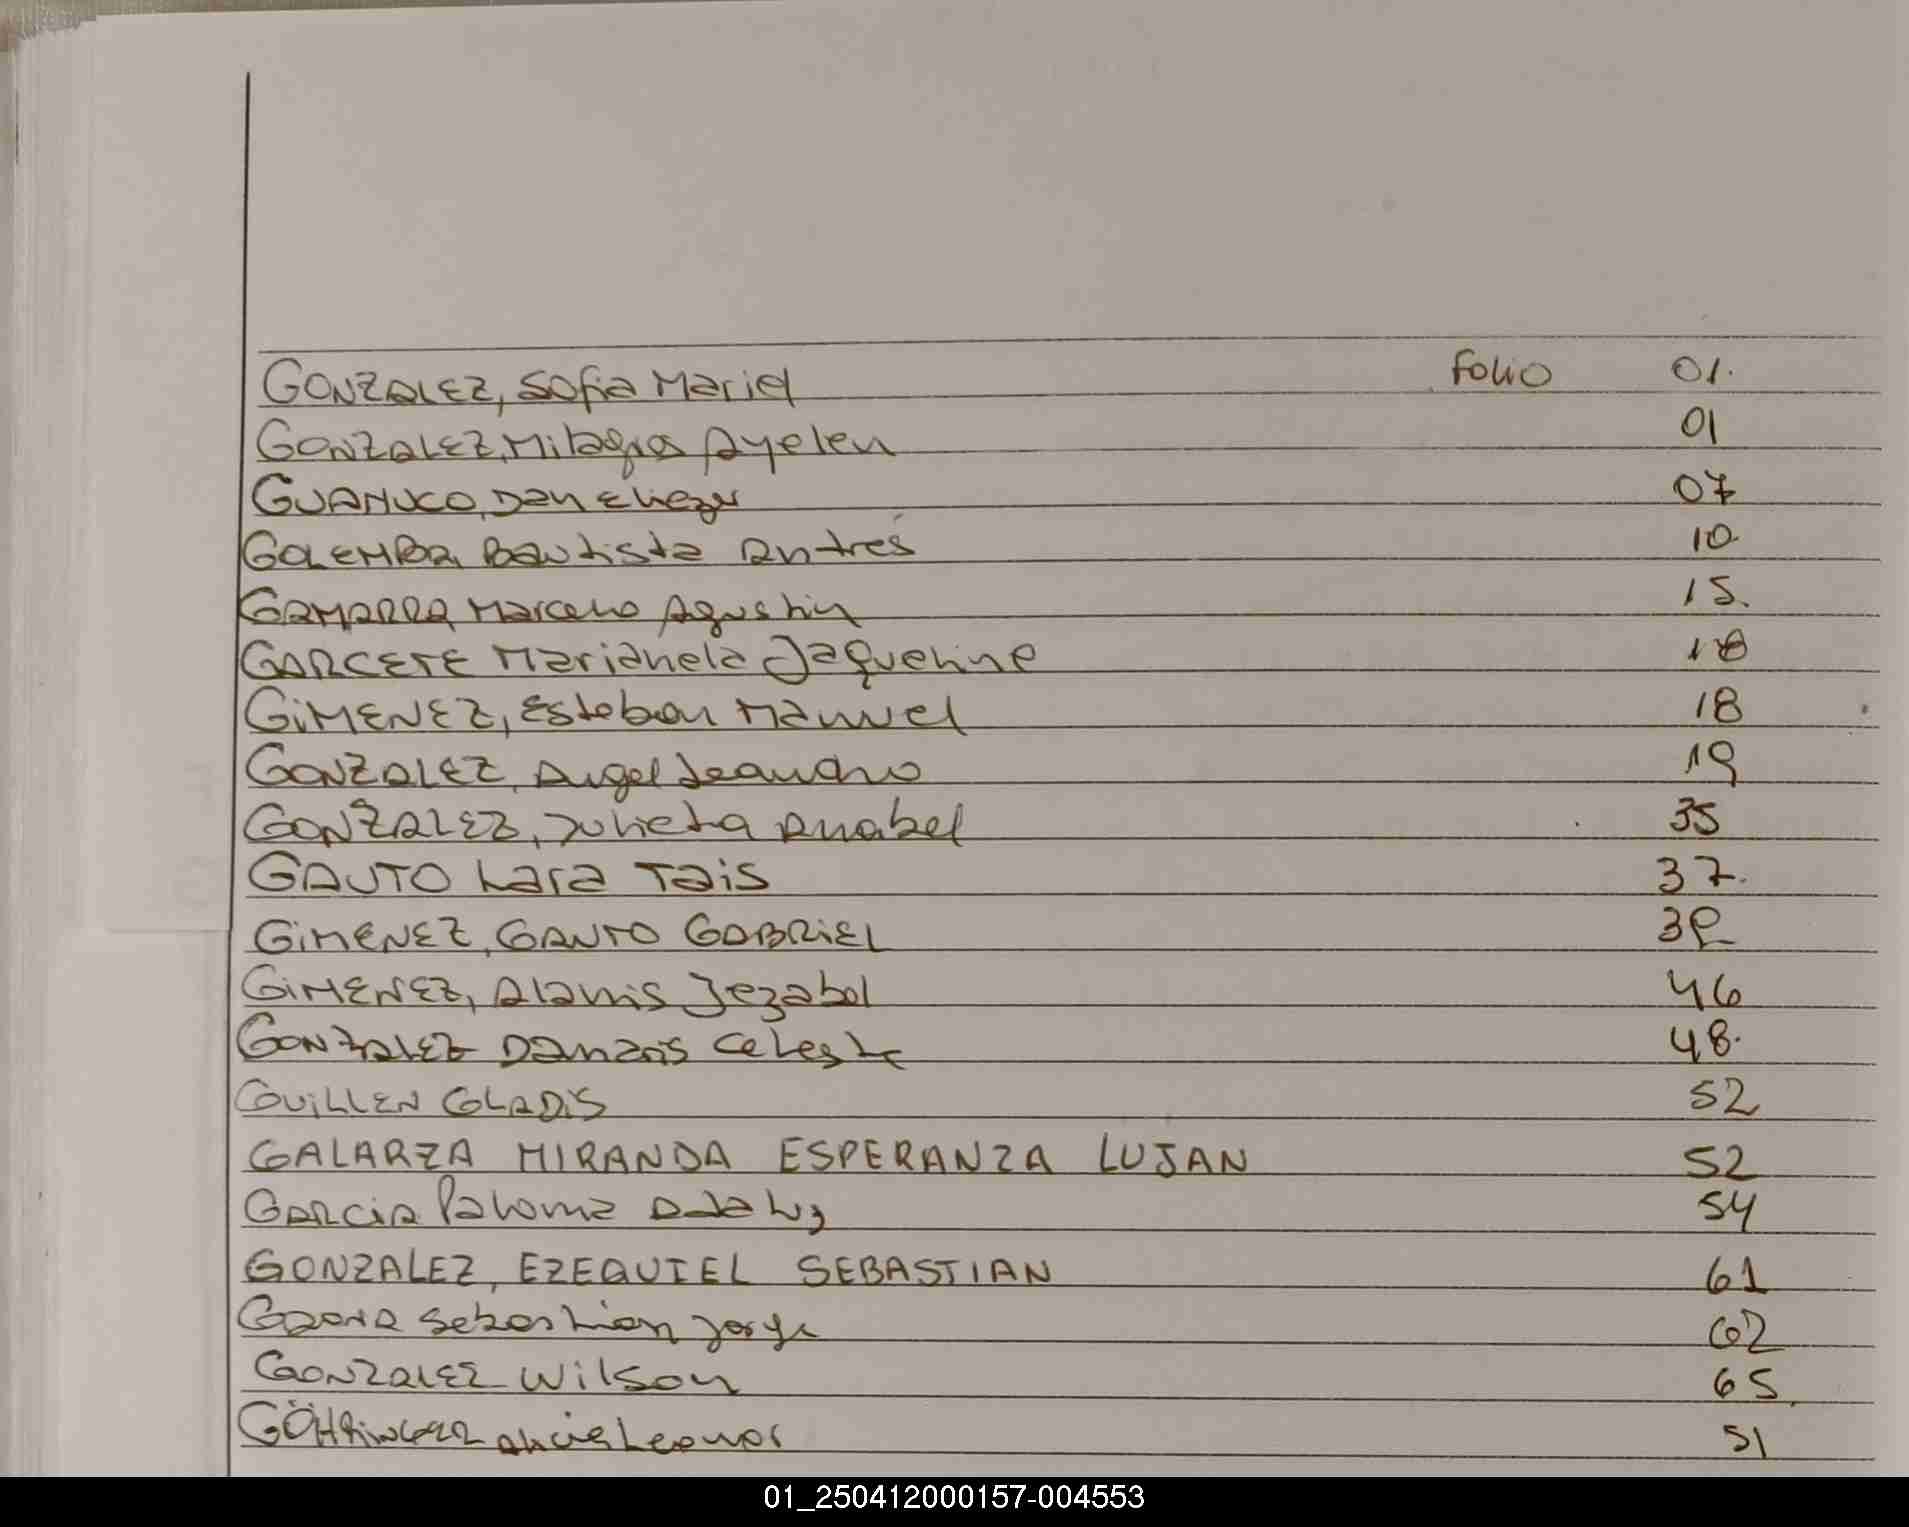 GONZALEZ, Sofia Mariel folio 01.
GONZALEZ, Milagros Ayelen 01
GUANUCO, Dan Eliezer 07
GOLEMBA, Bautista Antres 10
GAMARRA, Marcelo Agustin 15.
GARCETE Marianela Jaqueline 18
GIMENEZ, Esteban Manuel 18
GONZALEZ, Angel Leandro 19
GONZALEZ, Julieta Anabel 35
GAUTO Lara Tais 37.
GIMENEZ, GAUTO GABRIEL
GIMENEZ, Alanis Jezabel 46
GONZALEZ Damaris Celeste 48.
GUILLEN GLADIS 52
GALARZA MIRANDA ESPERANZA LUJAN 52
GARCIA Paloma 54
GONZALEZ, EZEQUIEL SEBASTIAN 61
Sebastian Jorge 62
GONZALEZ Wilson 65
GÖHRINGER Alicia Leonor 51
01_250412000157-004553